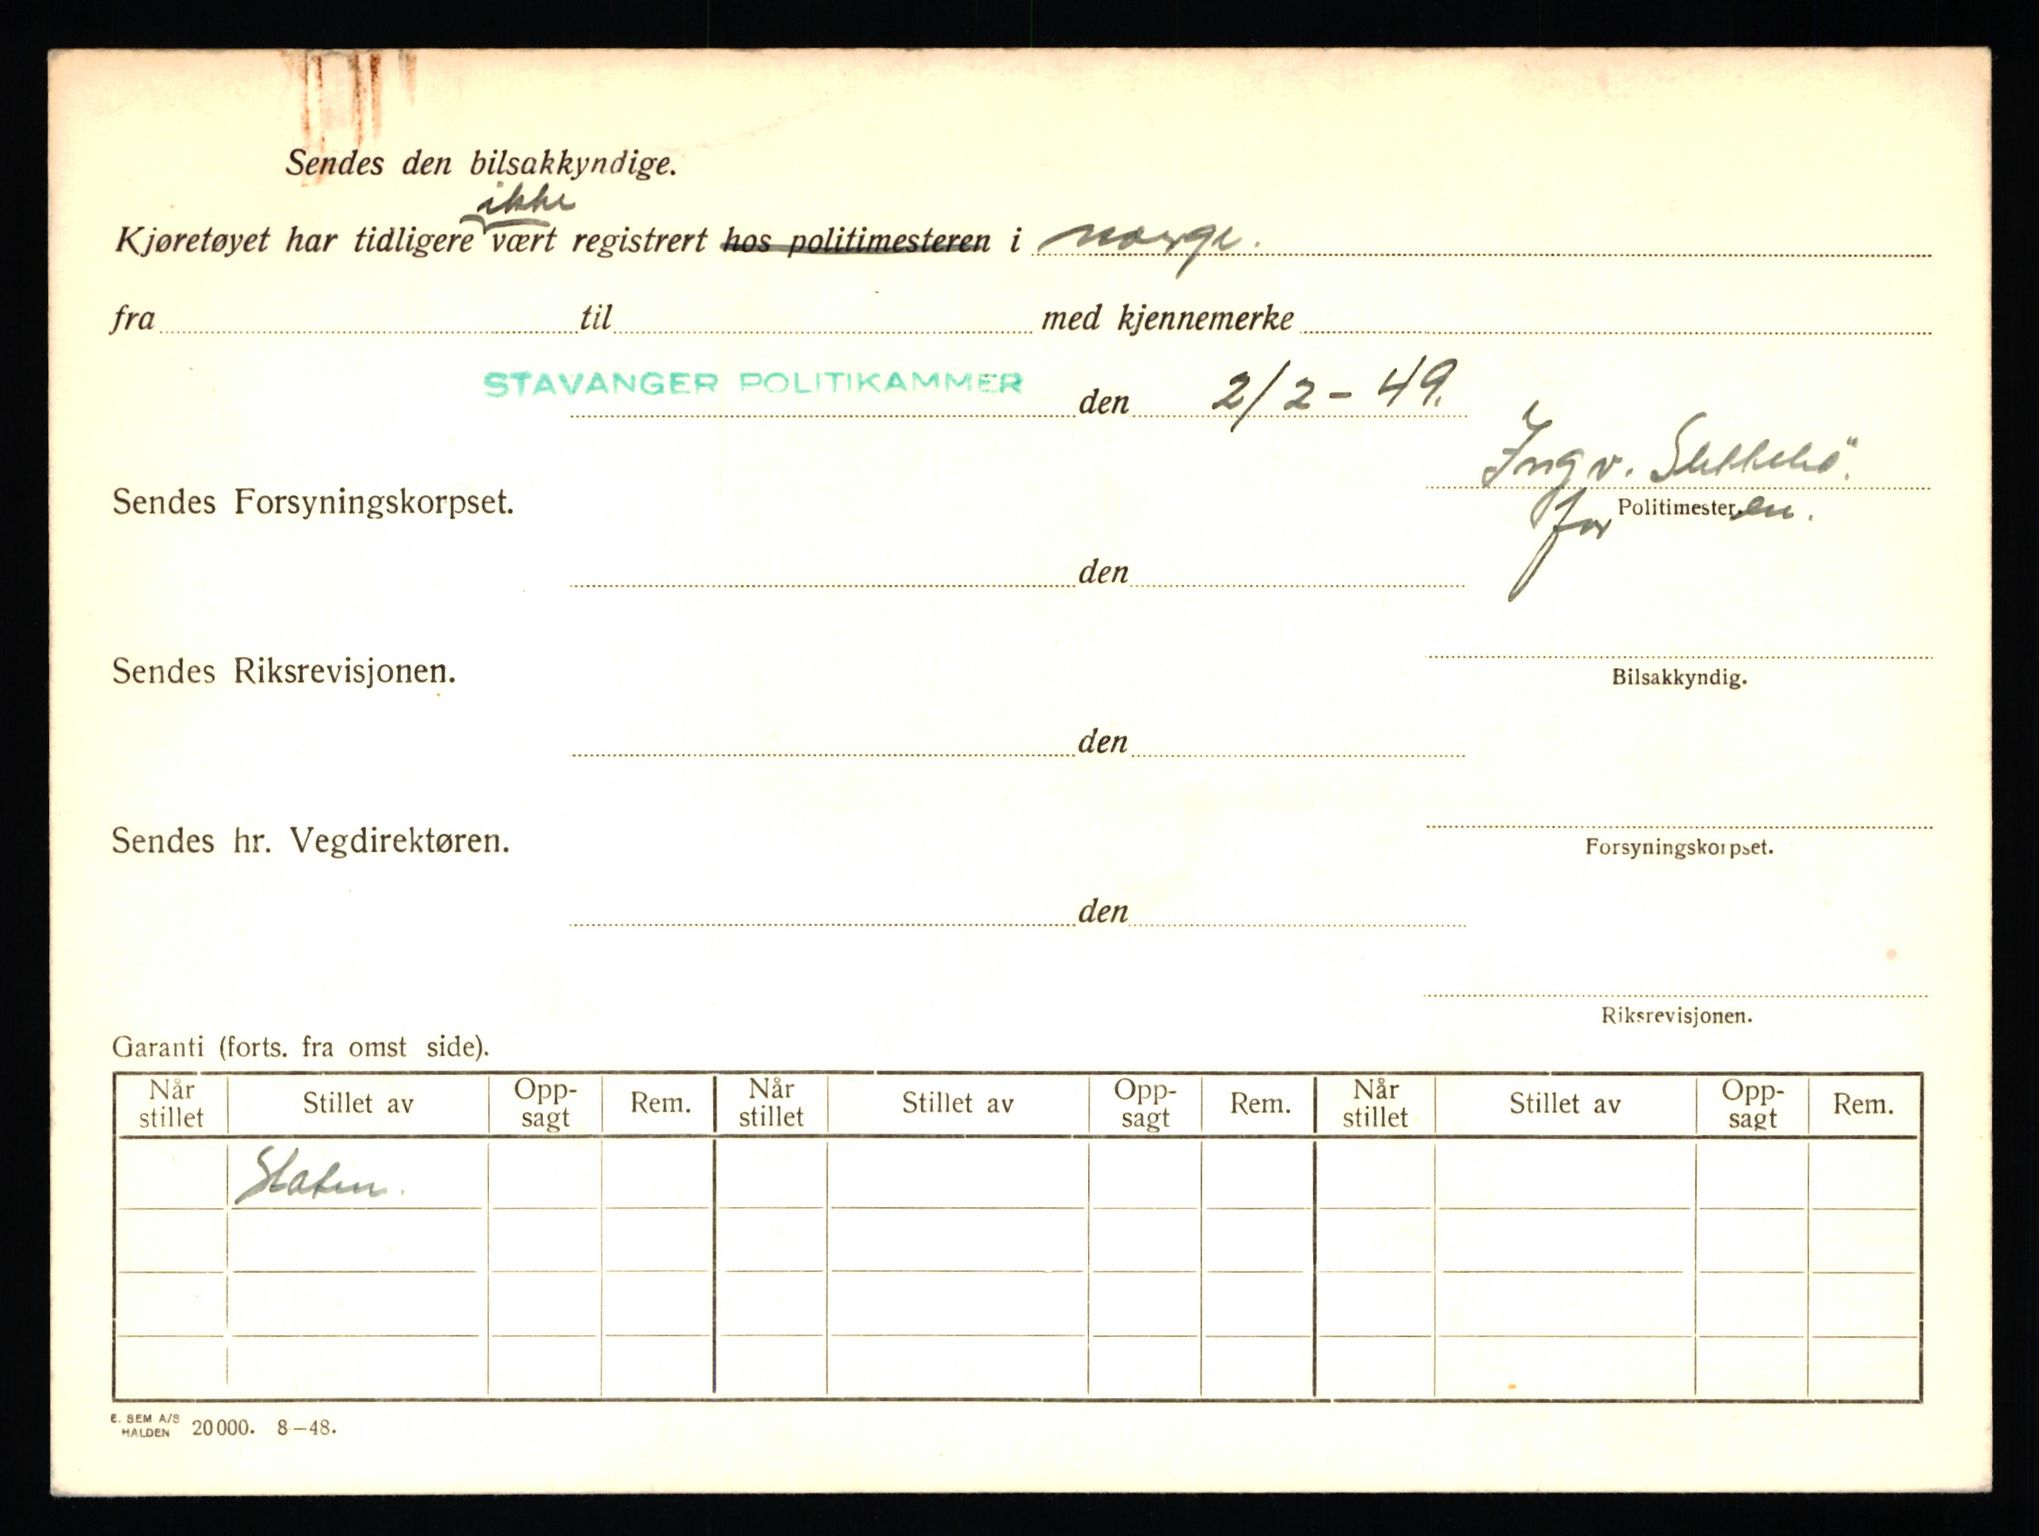 Sendes den bilsakkyndige.
ikke
Kjøretøyet har tidligere vært registrert hos politimesteren i norge.
fra til med kjennemerke
STAVANGER POLITIKAMMER den 2/2-49.
Ingv.
Sendes Forsyningskorpset.
for Politimester.en.
den
Sendes Riksrevisjonen.
Bilsakkyndig.
den
Sendes hr. Vegdirektøren.
Forsyningskorpset.
den
Riksrevisjonen.
Garanti (forts. fra omst side).
Når stillet Stillet av Opp-sagt Rem. Når stillet Stillet av Opp-sagt Rem. Når stillet Stillet av Opp-sagt Rem.
Staten.
E. SEM A/S
HALDEN 20000. 8-48.